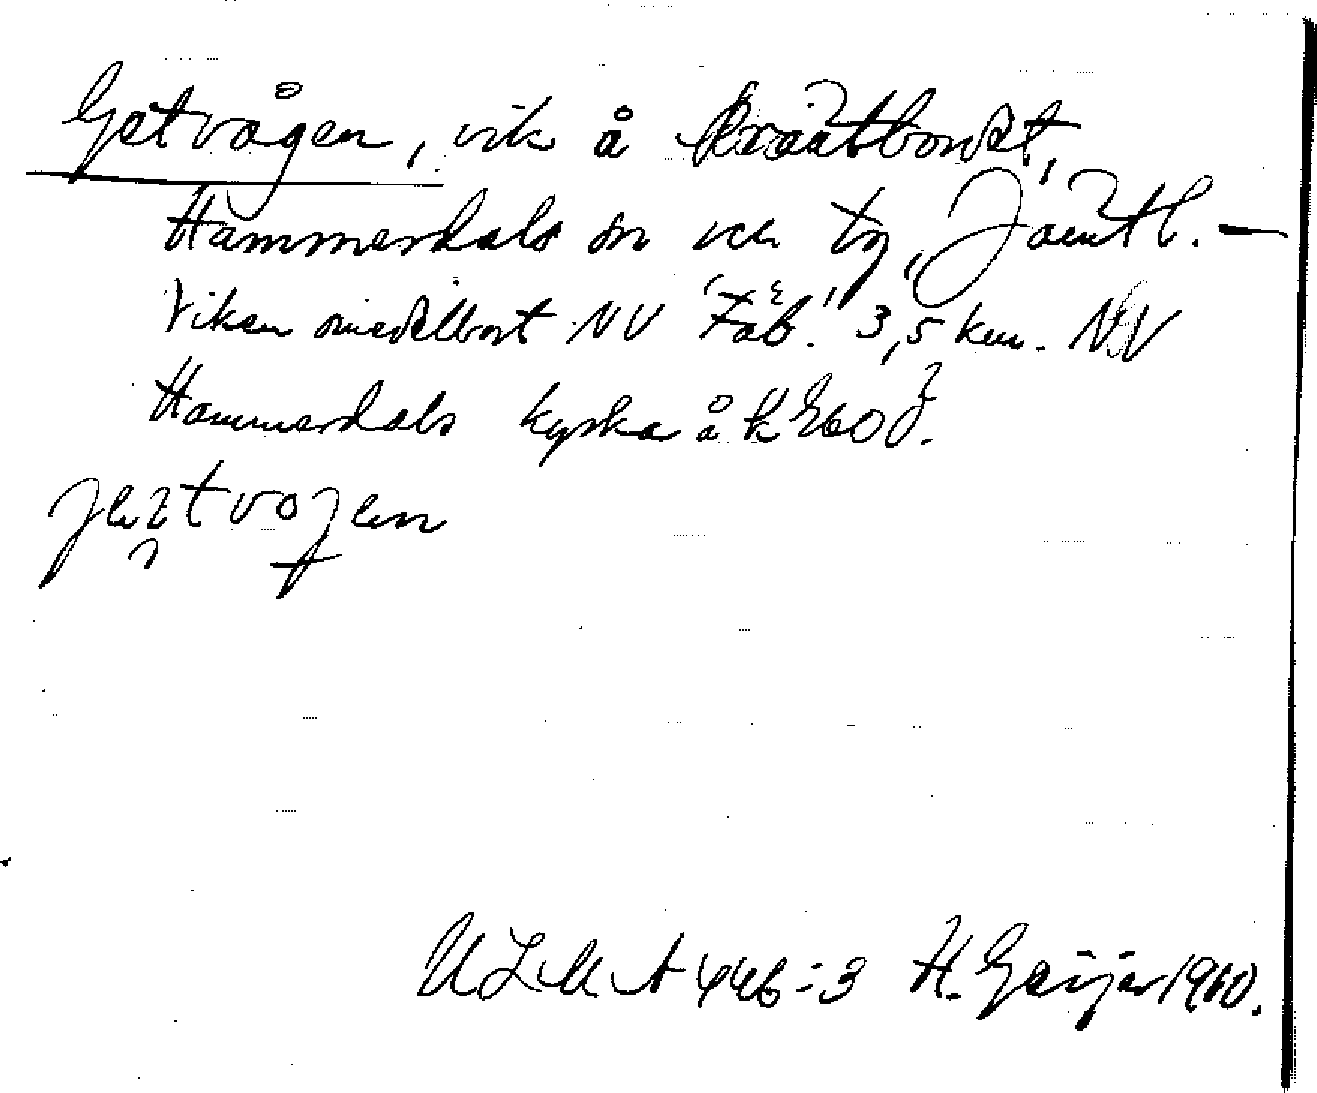 Getvågen, vik å
Hammerdals sn och tg, Jämtl. —
Viken omedelbart NV "Fäb." 3,5 km. NV
Hammerdals kyrka å k
ULMA 446:3 H. Geijer 1960.